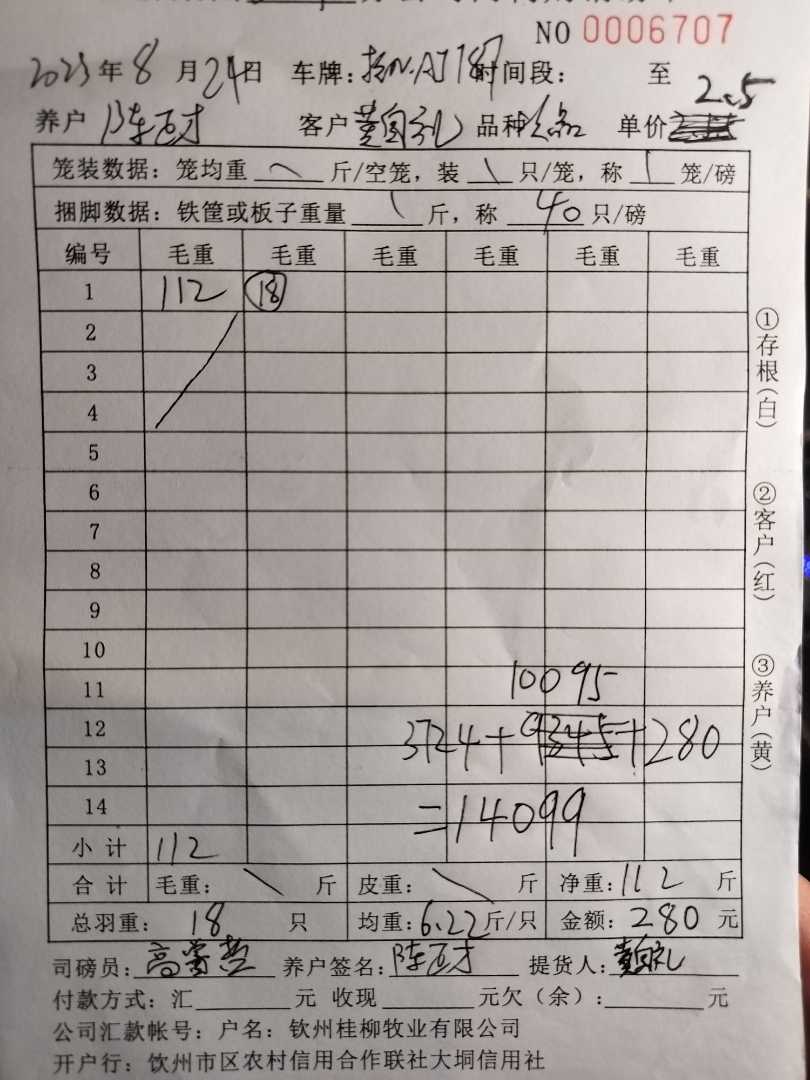 NO 0006707
2023年8月24日 车牌: 时间段: 至
2.5
养户 陈 才 客户 黄 礼 品种 单价
笼装数据: 笼均重 \ 斤/空笼, 装 \ 只/笼, 称 \ 笼/磅
捆脚数据: 铁筐或板子重量 \ 斤, 称 40 只/磅
编号 毛重 毛重 毛重 毛重 毛重 毛重
1 112 18
2
3
4
5
6
7
8
9
10
11 10095
12 3724+ +280
13
14 =14099
小计 112
合计 毛重: \ 斤 皮重: \ 斤 净重: 112 斤
总羽重: 18 只 均重: 6.22 斤/只 金额: 280 元
司磅员: 高 养户签名: 陈 才 提货人: 黄 礼
付款方式: 汇 元 收现 元欠(余): 元
公司汇款帐号: 户名: 钦州桂柳牧业有限公司
开户行: 钦州市区农村信用合作联社大垌信用社
①存根(白)
②客户(红)
③养户(黄)